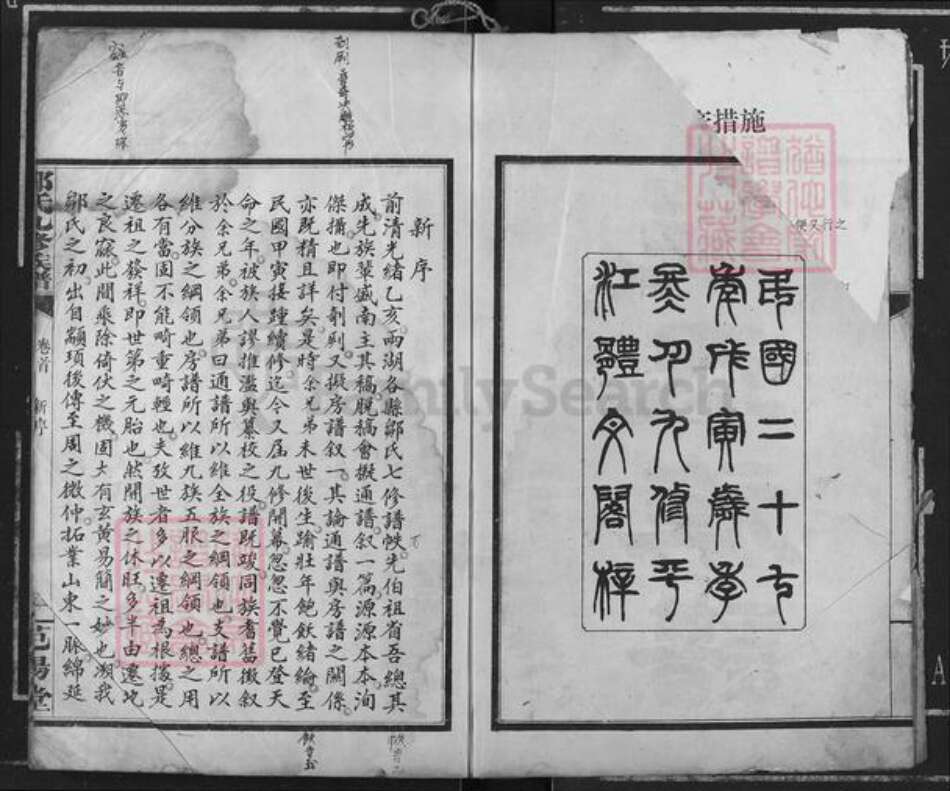 措施
民國二十七
年戊寅歲季
冬月九修平
江體文閣梓
便又行之
新序
前清光緒乙亥兩湖各縣鄒氏七修譜帙先伯祖省吾總其
成先族輩盛南主其稿脫稿會擬通譜叙一篇源源本本洵
傑搆也即付剞劂又擬房譜叙一其論通譜與房譜之關係
亦既精且詳矣是時余兄弟未世後生踰壯年飽飲緒綸至
民國甲寅接踵續修迄今又屆九修開幕忽忽不覺已登天
命之年被族人謬推濫與纂校之役譜既竣同族耆舊徵叙
於余兄弟余兄弟曰通譜所以維全族之綱領也支譜所以
維分族之綱領也房譜所以維九族五服之綱領也總之用
各有當固不能畸重畸輕也夫攷世者多以遷祖為根據是
遷祖之發祥即世第之元胎也然開族之休旺多半由遷地
之良窳此間乘除倚伏之機固大有玄黄易簡之妙也溯我
鄒氏之初出自顓頊後傳至周之微仲拓業山東一脈綿延
鄒氏九修族譜
卷首
新序